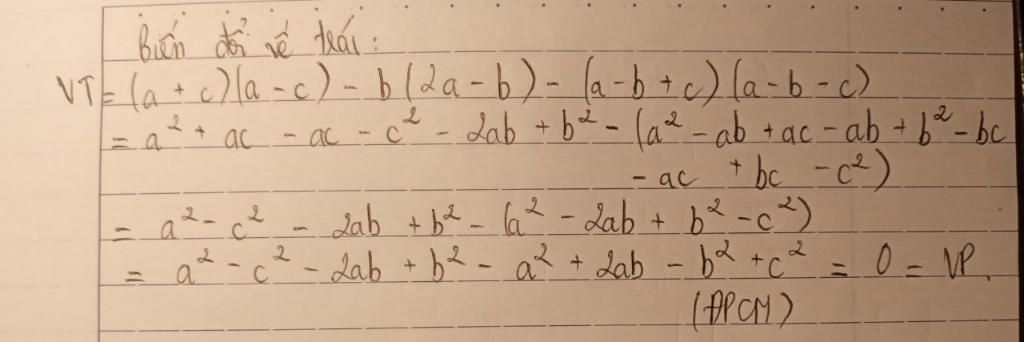 Biến đổi vế trái:
VT = (a + c)(a - c) - b(2a - b) - (a - b + c)(a - b - c)
= a² + ac - ac - c² - 2ab + b² - (a² - ab + ac - ab + b² - bc
- ac + bc - c²)
= a² - c² - 2ab + b² - (a² - 2ab + b² - c²)
= a² - c² - 2ab + b² - a² + 2ab - b² + c² = 0 = VP.
(ĐPCM)